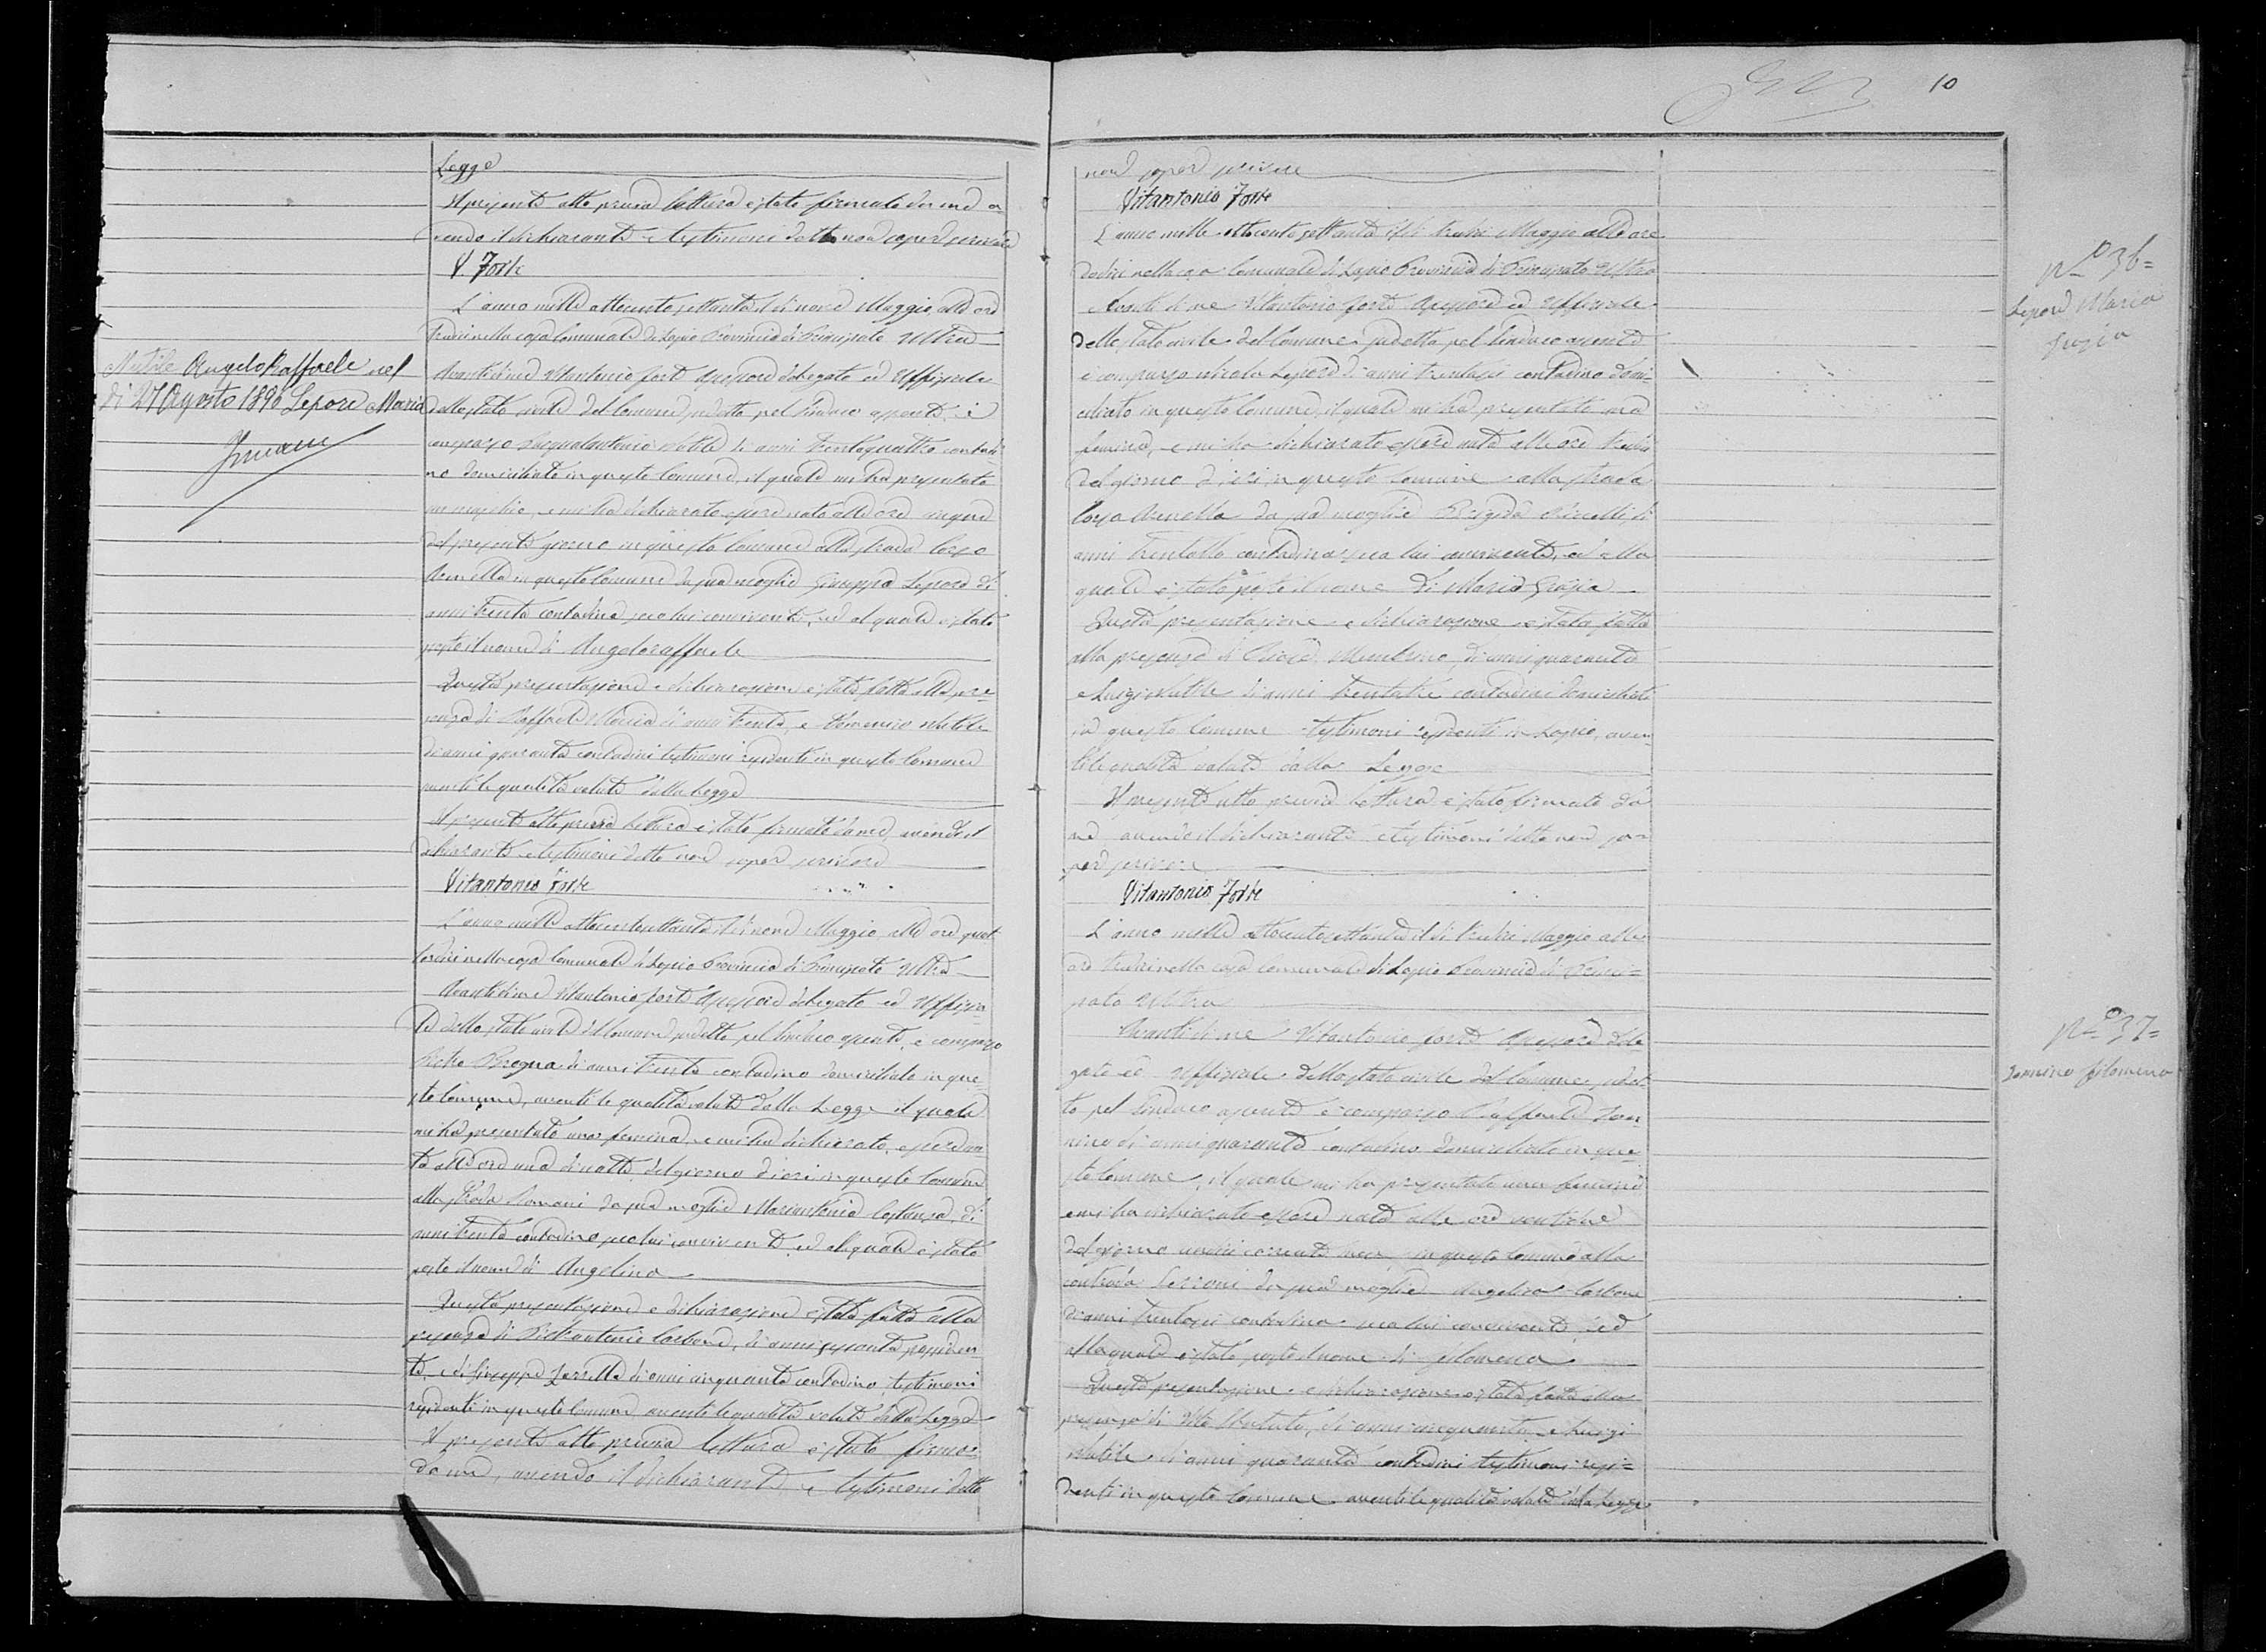 Legge
Il presente atto previa lettura è stato firmato da me a
vendo il dichiarante e testimoni detto non saper scrivere
V. Forte
L'anno mille ottocento settanta il dì nove Maggio, alle ore
tredici nella casa Comunale di Lapio Provincia di Principato Ultra
Avanti di me Vitantonio Forte Assessore delegato ed Uffiziale
dello stato civile del Comune sudetto pel Sindaco assente, è
comparso Pasqualantonio Natile di anni trentaquattro contadi
no domiciliato in questo Comune, il quale mi ha presentato
un maschio, e mi ha dichiarato essere nato alle ore cinque
del presente giorno in questo Comune alla strada Corso
Arenella in questo Comune da sua moglie Giuseppa Lepore di
anni trenta contadina seco lui convivente, ed al quale è stato
posto il nome di Angeloraffaele
Questa presentazione e dichiarazione è stata fatta alla pre
senza di Raffaele di anni trenta, e Domenico Natile
di anni quaranta contadini testimoni residenti in questo Comune
aventi le qualità volute dalla Legge
Il presente atto previa lettura è stato firmato da me, avendo il
dichiarante e testimoni detto non saper scrivere
Vitantonio Forte
L'anno mille ottocentosettanta il dì nove Maggio, alle ore quat
tordici nella casa Comunale di Lapio Provincia di Principato Ultra
Avanti di me Vitantonio Forte Assessore delegato ed Uffizia
le dello stato civile del Comune sudetto pel Sindaco assente, è comparso
Pietro Brogna di anni trenta contadino domiciliato in que
sto Comune, avente le qualità volute dalla Legge il quale
mi ha presentato una femina, e mi ha dichiarato, essere na
ta alle ore una di notte del giorno di ieri in questo Comune
alla strada Romani da sua moglie Mariantonia Costanza, di
anni trenta contadina seco lui convivente, ed al quale è stato
posto il nome di Angelina
Questa presentazione e dichiarazione è stata fatta alla
presenza di Pietrantonio Carbone, di anni sessanta possiden
te, e di Giuseppe Zarrella di anni cinquanta contadino, testimoni
residenti in questo Comune aventi le qualità volute dalla Legge
Il presente atto previa lettura è stato firmato
da me, avendo il dichiarante e testimoni detto
Natile Angelo Raffaele nel
dì 27 Agosto 1896 Lepore Maria
10
non saper scrivere
Vitantonio Forte
L'anno mille ottocento settanta il dì tredici Maggio alle ore
dodici nella casa Comunale di Lapio Provincia di Principato Ultra
Avanti di me Vitantonio Forte Assessore ed Uffiziale
dello stato civile del Comune sudetto pel Sindaco assente
è comparso Nicola Lepore di anni trentasei contadino domi=
ciliato in questo Comune, il quale mi ha presentato una
femina, e mi ha dichiarato essere nata alle ore tredici
del giorno di ieri in questo Comune alla strada
Corso Arenella da sua moglie Brigida di
anni trentotto contadina seco lui convivente, ed alla
quale è stato posto il nome di Maria Grazia
Questa presentazione e dichiarazione è stata fatta
alla presenza di di anni quaranta
e Luigi Natile di anni trentatre contadini domiciliati
in questo Comune testimoni residenti in Lapio, aven
ti le qualità volute dalla Legge
Il presente atto previa lettura è stato firmato da
me avendo il dichiarante e testimoni detto non sa=
pere scrivere
Vitantonio Forte
L'anno mille ottocentosettanta il dì tredici Maggio alle
ore tredici nella casa Comunale di Lapio Provincia di Princi=
pato Ultra
Avanti di me Vitantonio Forte Assessore dele
gato ed Uffiziale dello stato civile del Comune sudet
to pel Sindaco assente è comparso Raffaele Ian
nino di anni quaranta contadino domiciliato in que
sto Comune, il quale mi ha presentato una femina
e mi ha dichiarato essere nata alle ore ventidue
del giorno undici corrente mese in questo Comune alla
contrada Serroni da sua moglie Angelica Carbone
di anni trentasei contadina seco lui convivente, ed
alla quale è stato posto il nome di Filomena
Questa presentazione e dichiarazione è stata fatta alla
presenza di Vito di anni cinquanta e Luigi
Natile di anni quaranta contadini testimoni resi=
denti in questo Comune aventi le qualità volute dalla Legge
N.° 36=
Lepore Maria
Grazia
N.° 37=
Iannino Filomena